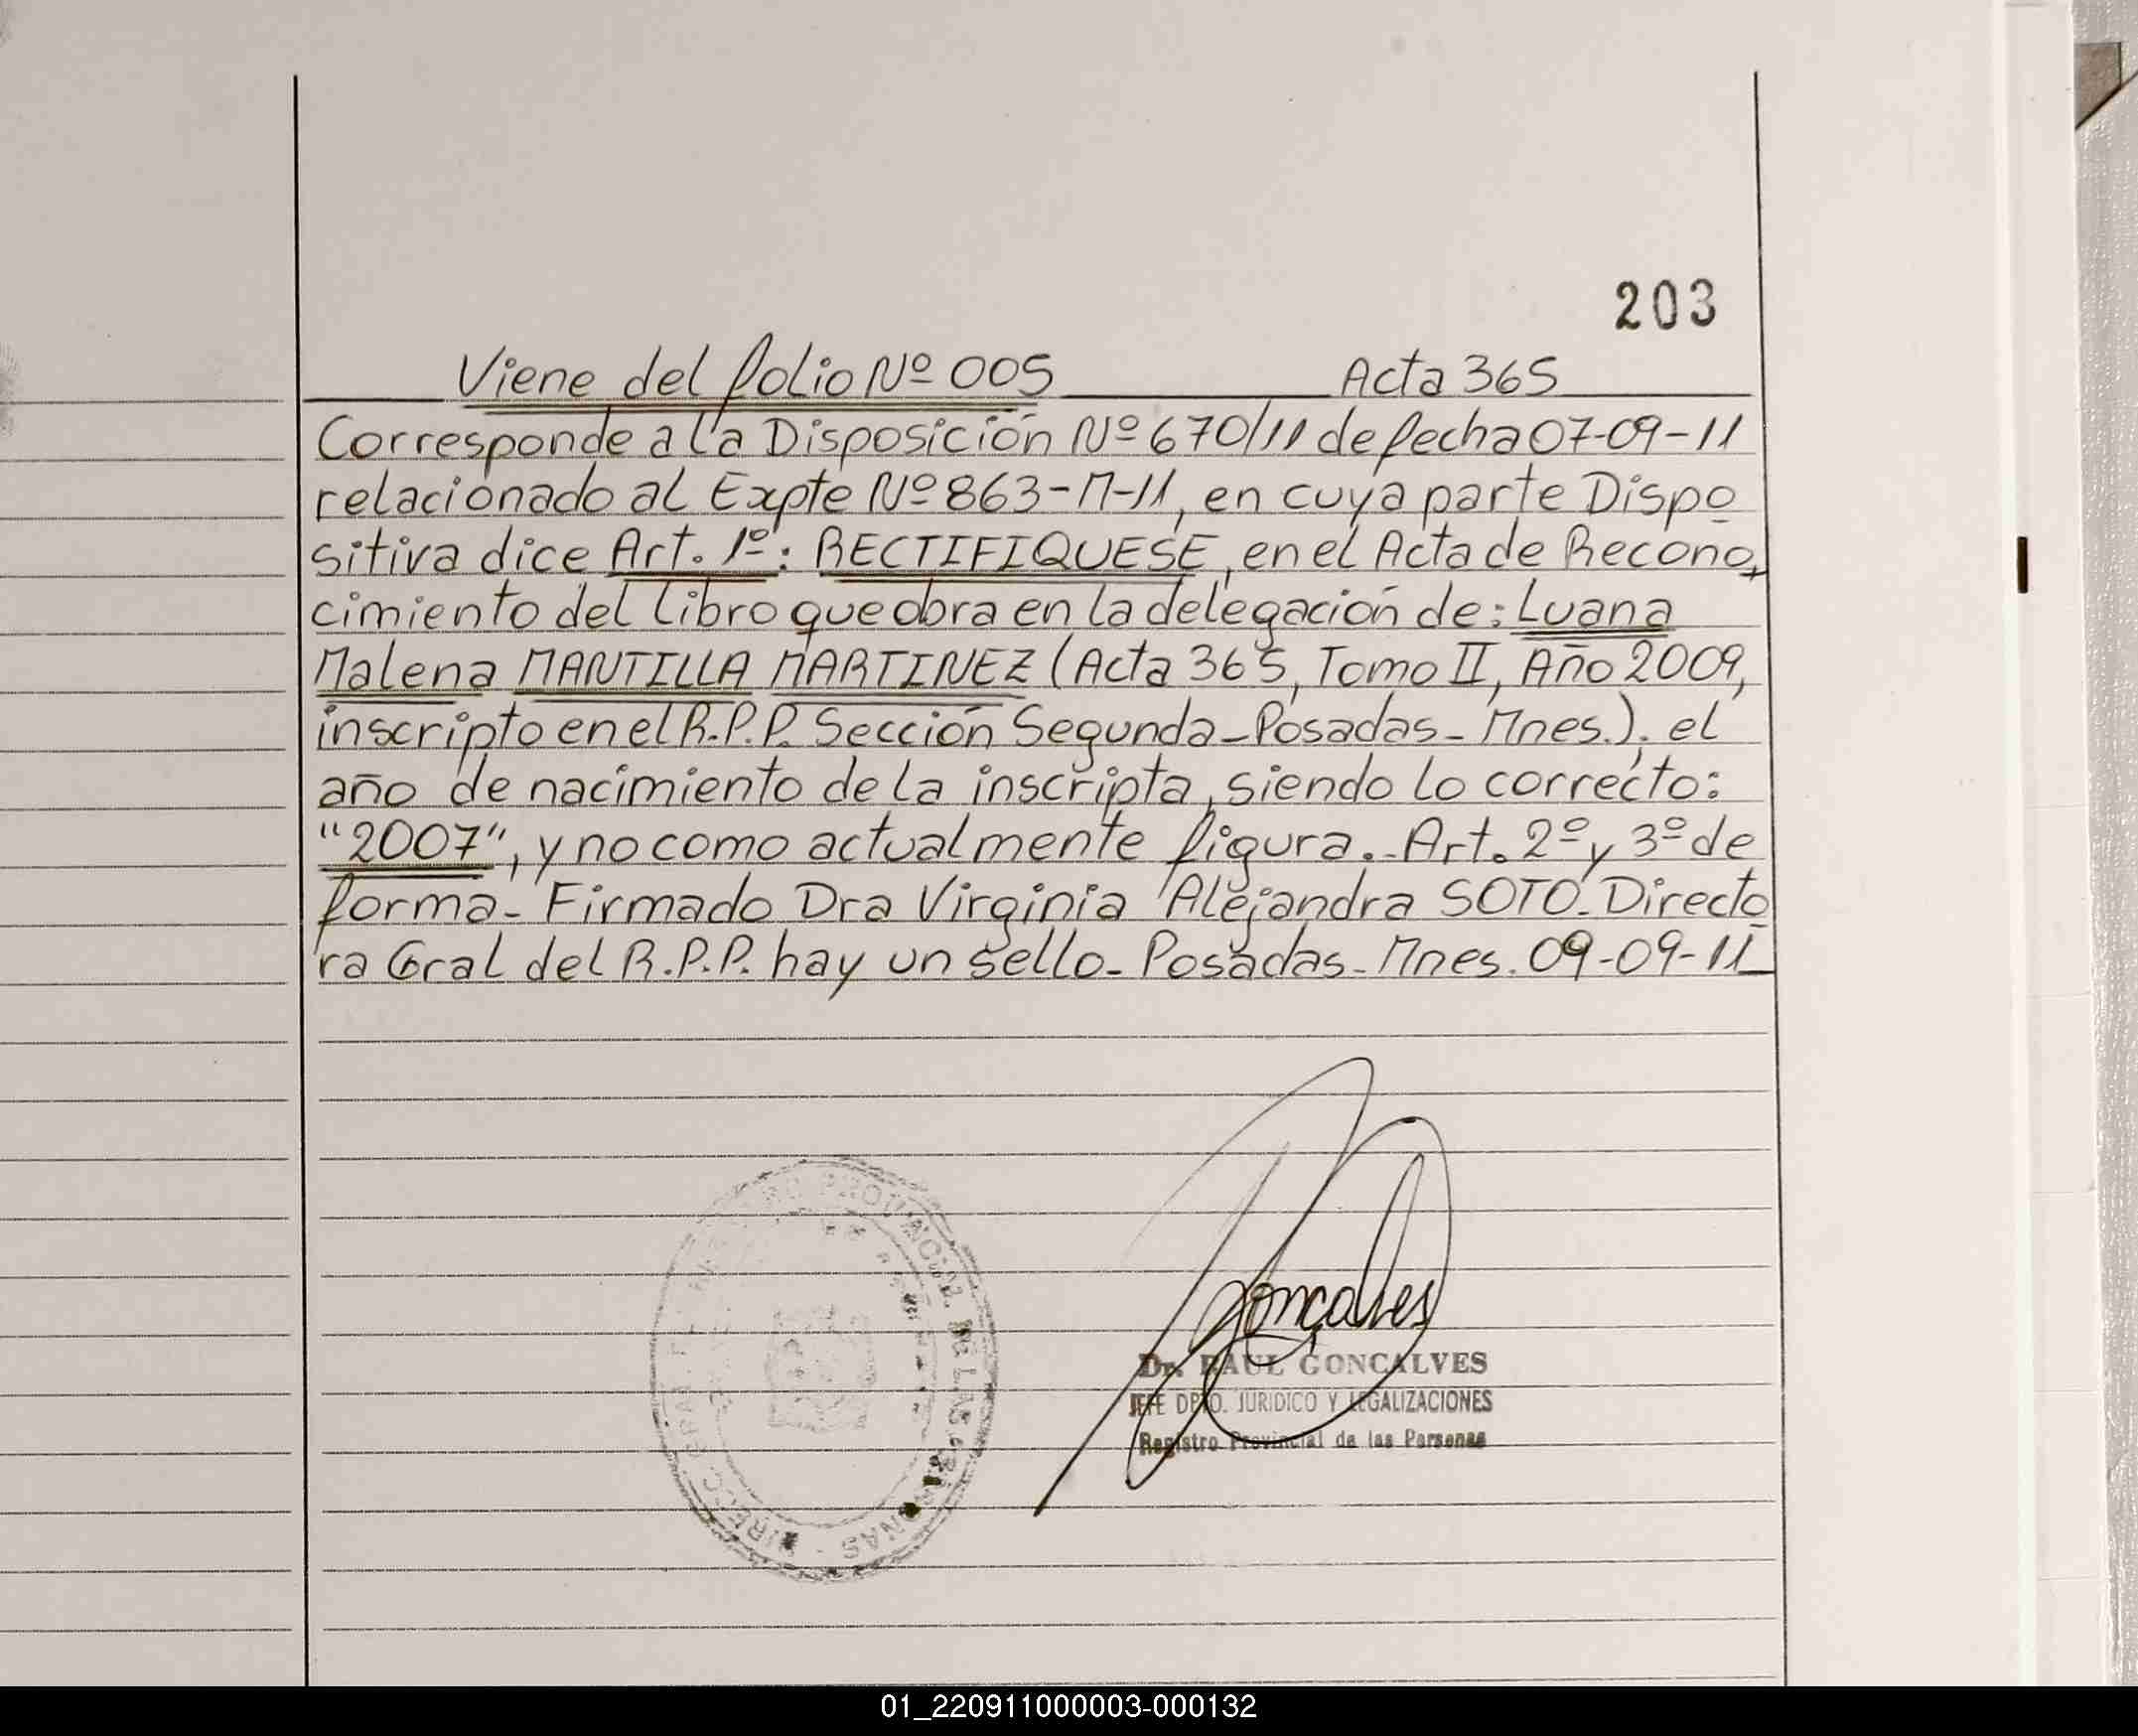 203
Viene del folio Nº 005 Acta 365
Corresponde a la Disposición Nº 670/11 de fecha 07-09-11
relacionado al Expte Nº 863-M-11, en cuya parte Dispo
sitiva dice Art. 1º: RECTIFIQUESE, en el Acta de Recono
cimiento del libro que obra en la delegación de: Luana
Malena MANTILLA MARTINEZ (Acta 365, Tomo II, Año 2009,
inscripto en el R.P.P. Sección Segunda-Posadas-Mnes.), el
año de nacimiento de la inscripta, siendo lo correcto:
"2007", y no como actualmente figura.- Art. 2º y 3º de
forma- Firmado Dra Virginia Alejandra SOTO. Directo
ra Gral del R.P.P. hay un sello- Posadas-Mnes. 09-09-11
PROVINCIAL DE LAS PERSONAS - DIRECC. GRAL.
Goncalves
Dr. RAUL GONCALVES
JEFE DPTO. JURIDICO Y LEGALIZACIONES
Registro Provincial de las Personas
01_220911000003-000132